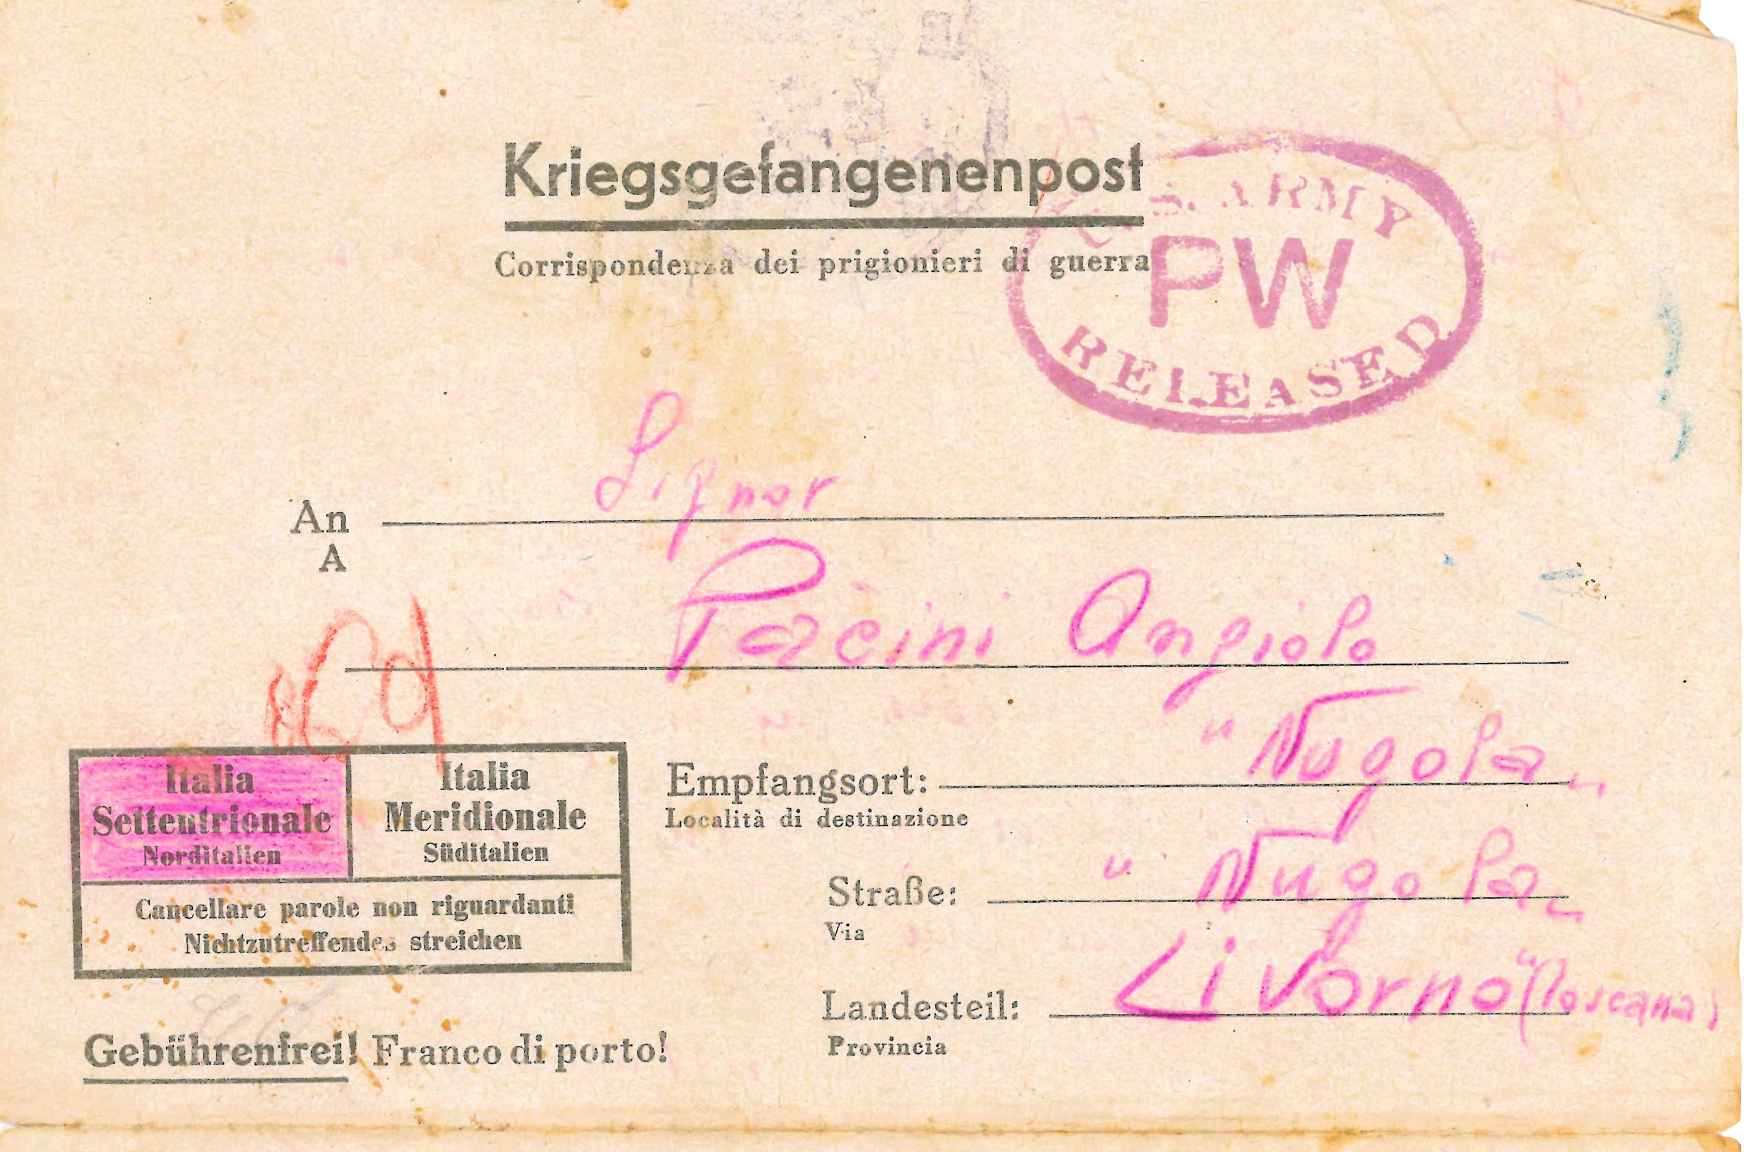 Kriegsgefangenenpost
Corrispondenza dei prigionieri di guerra
U.S. ARMY
PW
RELEASED
An Signor
A
Pacini Angiolo
Italia
Settentrionale
Norditalien
Italia
Meridionale
Süditalien
Cancellare parole non riguardanti
Nichtzutreffendes streichen
Empfangsort: "Nugola"
Località di destinazione
Straße: "Nugola"
Via
Landesteil: Livorno" (Toscana)
Provincia
Gebührenfrei! Franco di porto!